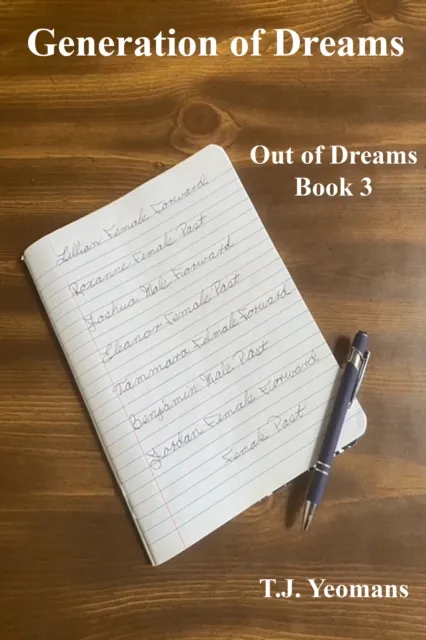 Generation of Dreams
Out of Dreams
Book 3
Lillian Female Forward
Roxanne Female Past
Joshua Male Forward
Eleanor Female Past
Tammara Felmale Forward
Benjamin Male Past
Jordan Female Forward
Female Past
T.J. Yeomans